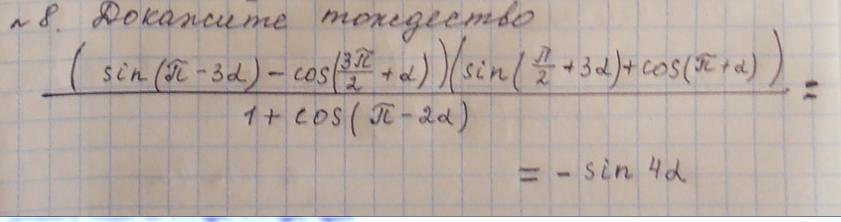 № 8. Докажите тождество
(sin(π-3α)-cos(3π/2+α))(sin(π/2+3α)+cos(π+α))
1+cos(π-2α) =
= - sin 4α